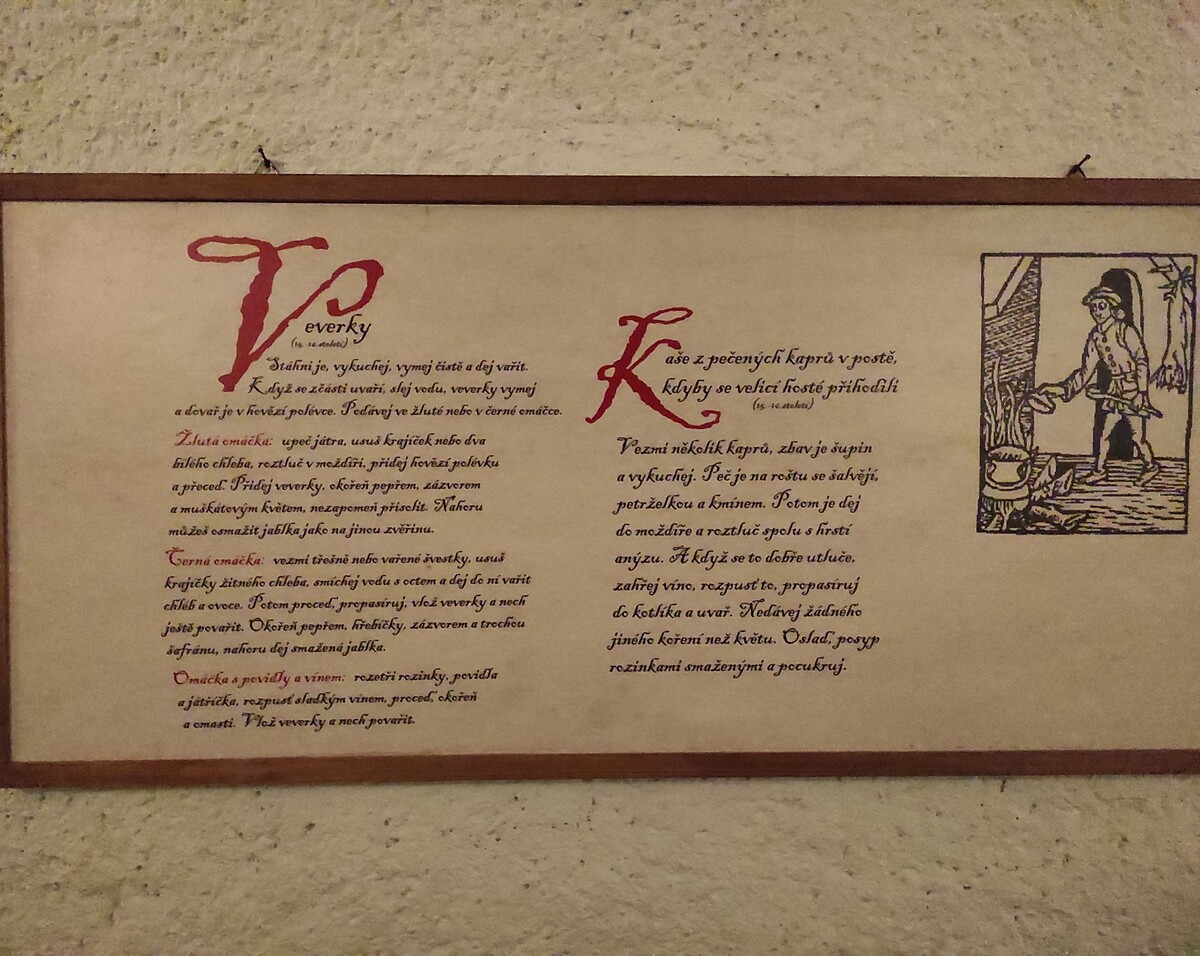 Veverky
(15.-16. století)
Stáhni je, vykuchej, vymej čistě a dej vařit.
Když se zčásti uvaří, slej vodu, veverky vymej
a dovař je v hovězí polévce. Podávej ve žluté nebo v černé omáčce.
Žlutá omáčka: upeč játra, usuš krajíček nebo dva
bílého chleba, roztluč v moždíři, přidej hovězí polévku
a přeceď. Přidej veverky, okořeň pepřem, zázvorem
a muškátovým květem, nezapomeň přisolit. Nahoru
můžeš osmažit jablka jako na jinou zvěřinu.
Černá omáčka: vezmi třešně nebo vařené švestky, usuš
krajíčky žitného chleba, smíchej vodu s octem a dej do ní vařit
chléb a ovoce. Potom proceď, propasíruj, vlož veverky a nech
ještě povařit. Okořeň pepřem, hřebíčky, zázvorem a trochou
šafránu, nahoru dej smažená jablka.
Omáčka s povidly a vínem: rozetři rozinky, povidla
a játříčka, rozpusť sladkým vínem, proceď, okořeň
a omasti. Vlož veverky a nech povařit.
Kaše z pečených kaprů v postě,
kdyby se velicí hosté přihodili
(15.-16. století)
Vezmi několik kaprů, zbav je šupin
a vykuchej. Peč je na roštu se šalvějí,
petrželkou a kmínem. Potom je dej
do moždíře a roztluč spolu s hrstí
anýzu. A když se to dobře utluče,
zahřej víno, rozpusť to, propasíruj
do kotlíka a uvař. Nedávej žádného
jiného koření než květu. Oslaď, posyp
rozinkami smaženými a pocukruj.